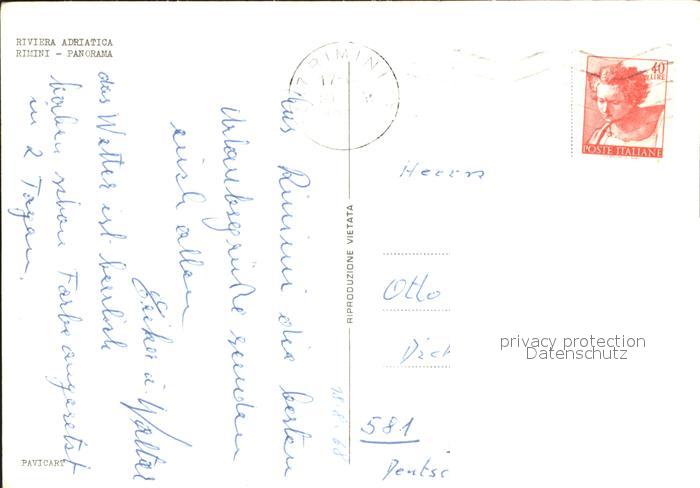 RIVIERA ADRIATICA
RIMINI - PANORAMA
RIMINI
40
LIRE
POSTE ITALIANE
Aus Rimini die besten
Urlaubsgrüße senden
euch allen
u. Walter
das Wetter ist herrlich
haben schon Farbe angesetzt
in 2 Tagen.
RIPRODUZIONE VIETATA
Herrn
Otto
581
Deutsc
PAVICART
privacy protection
Datenschutz